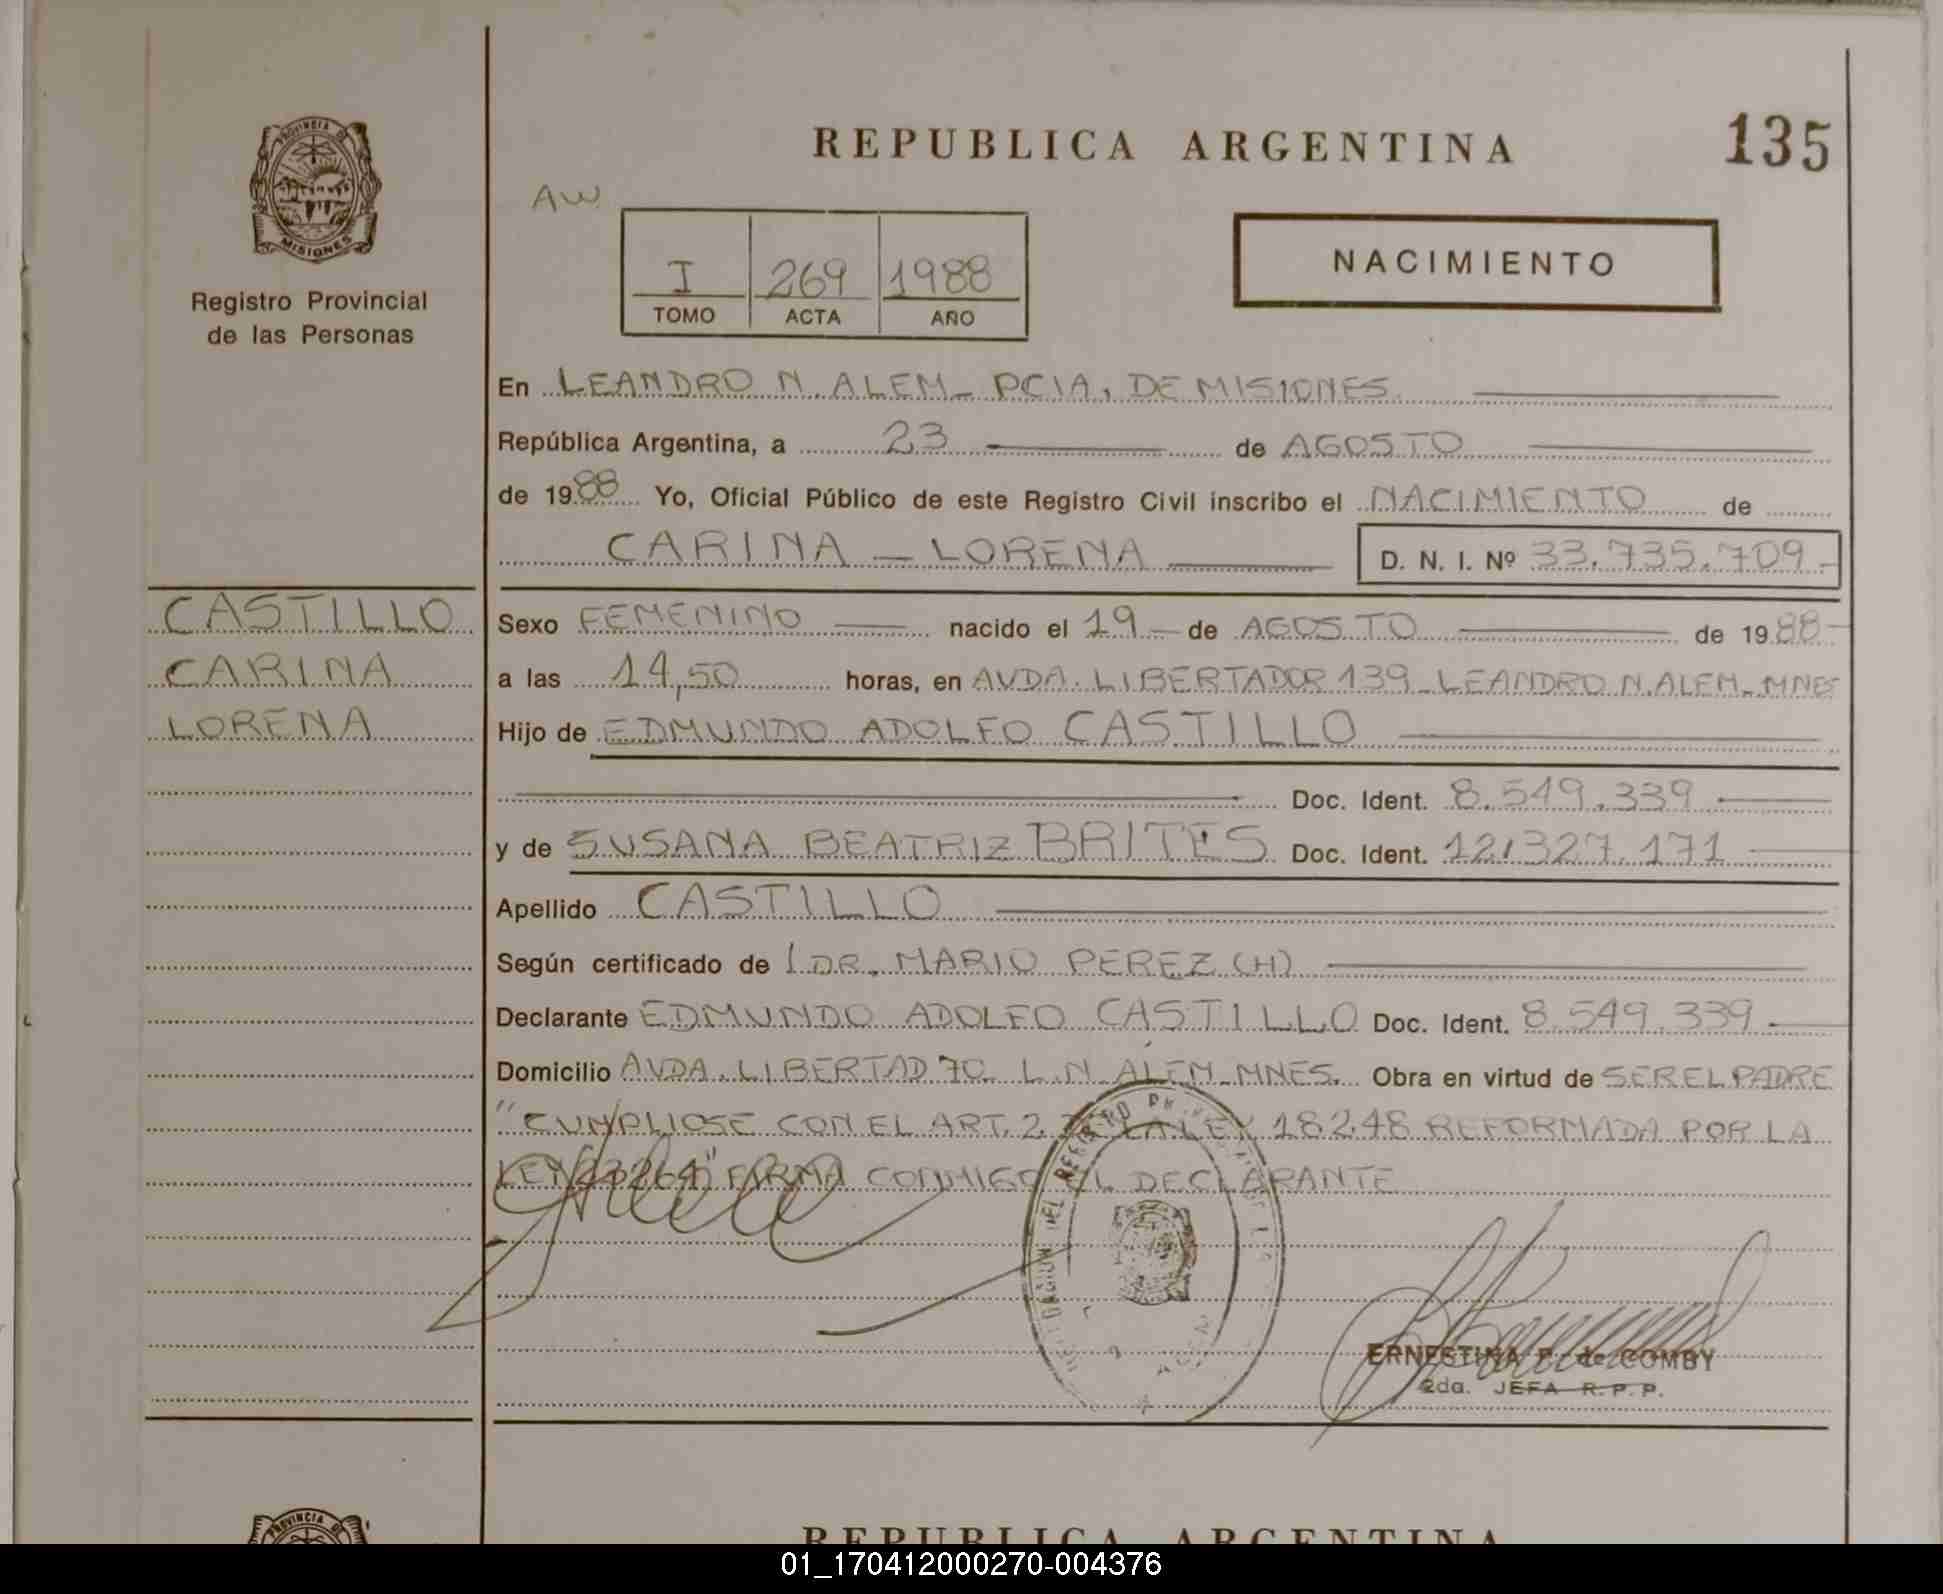 PROVINCIA DE
MISIONES
Registro Provincial
de las Personas
CASTILLO
CARINA
LORENA
REPUBLICA ARGENTINA
135
AW
I 269 1988
TOMO ACTA AÑO
NACIMIENTO
En LEANDRO N. ALEM_ PCIA. DE MISIONES.
República Argentina, a 23 de AGOSTO
de 1988 Yo, Oficial Público de este Registro Civil inscribo el NACIMIENTO de
CARINA - LORENA D. N. I. Nº 33.735.709-
Sexo FEMENINO nacido el 19 - de AGOSTO de 1988-
a las 14,50 horas, en AVDA. LIBERTADOR 139_LEANDRO N. ALEM_MNES
Hijo de EDMUNDO ADOLFO CASTILLO
Doc. Ident. 8.549.339
y de SUSANA BEATRIZ BRITES Doc. Ident. 12.327.171
Apellido CASTILLO
Según certificado de DR. MARIO PEREZ (H)
Declarante EDMUNDO ADOLFO CASTILLO Doc. Ident. 8.549.339
Domicilio AVDA. LIBERTAD 70 L.N. ALEM_MNES. Obra en virtud de SER EL PADRE
"CUMPLIOSE CON EL ART. 2 DE LA LEY 18248 REFORMADA POR LA
LEY 23264" FIRMA CONMIGO EL DECLARANTE
ERNESTINA P. de COMBY
2da. JEFA R.P.P.
PROVINCIA DE
REPUBLICA ARGENTINA
01_170412000270-004376